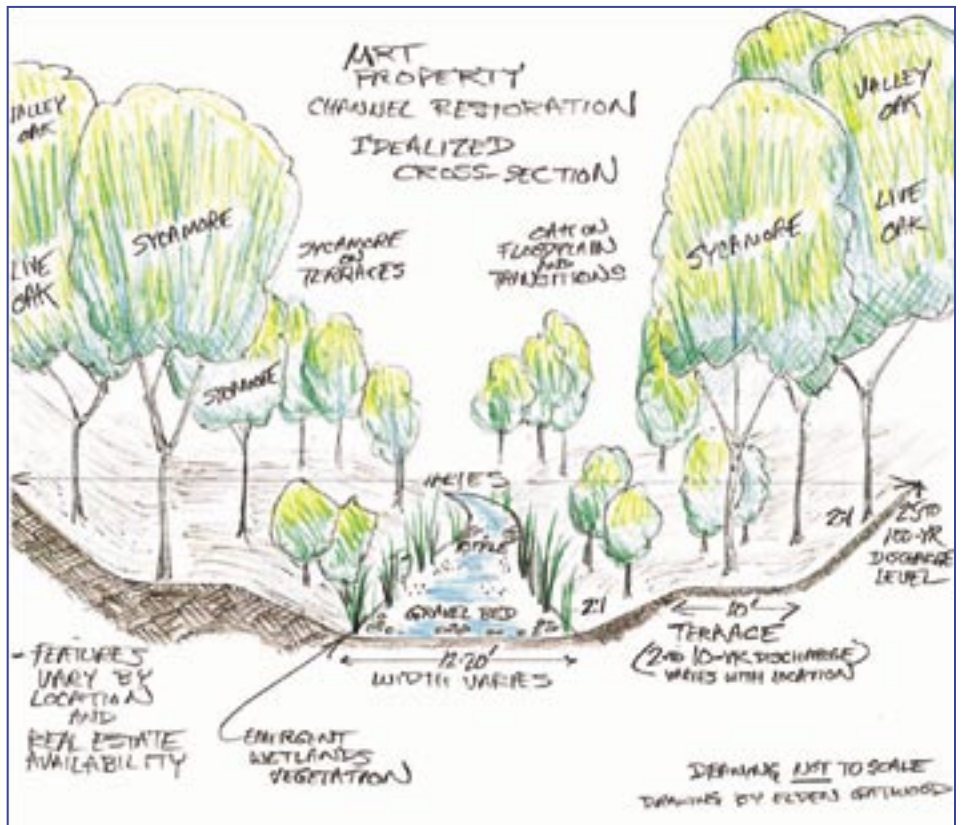 MRT
PROPERTY
CHANNEL RESTORATION
IDEALIZED
CROSS-SECTION
VALLEY
OAK
LIVE
OAK
SYCAMORE
SYCAMORE
ON
TERRACES
OAK ON
FLOODPLAIN
AND
TRANSITIONS
SYCAMORE
VALLEY
OAK
LIVE
OAK
SYCAMORE
VARIES
RIFFLE
GRAVEL BED
12-20'
WIDTH VARIES
2:1
10'
TERRACE
(2 TO 10-YR DISCHARGE)
VARIES WITH LOCATION
2:1
25 TO
100-YR
DISCHARGE
LEVEL
- FEATURES
VARY BY
LOCATION
AND
REAL ESTATE
AVAILABILITY
EMERGENT
WETLANDS
VEGETATION
DRAWING NOT TO SCALE
DRAWING BY ELDEN GATWOOD